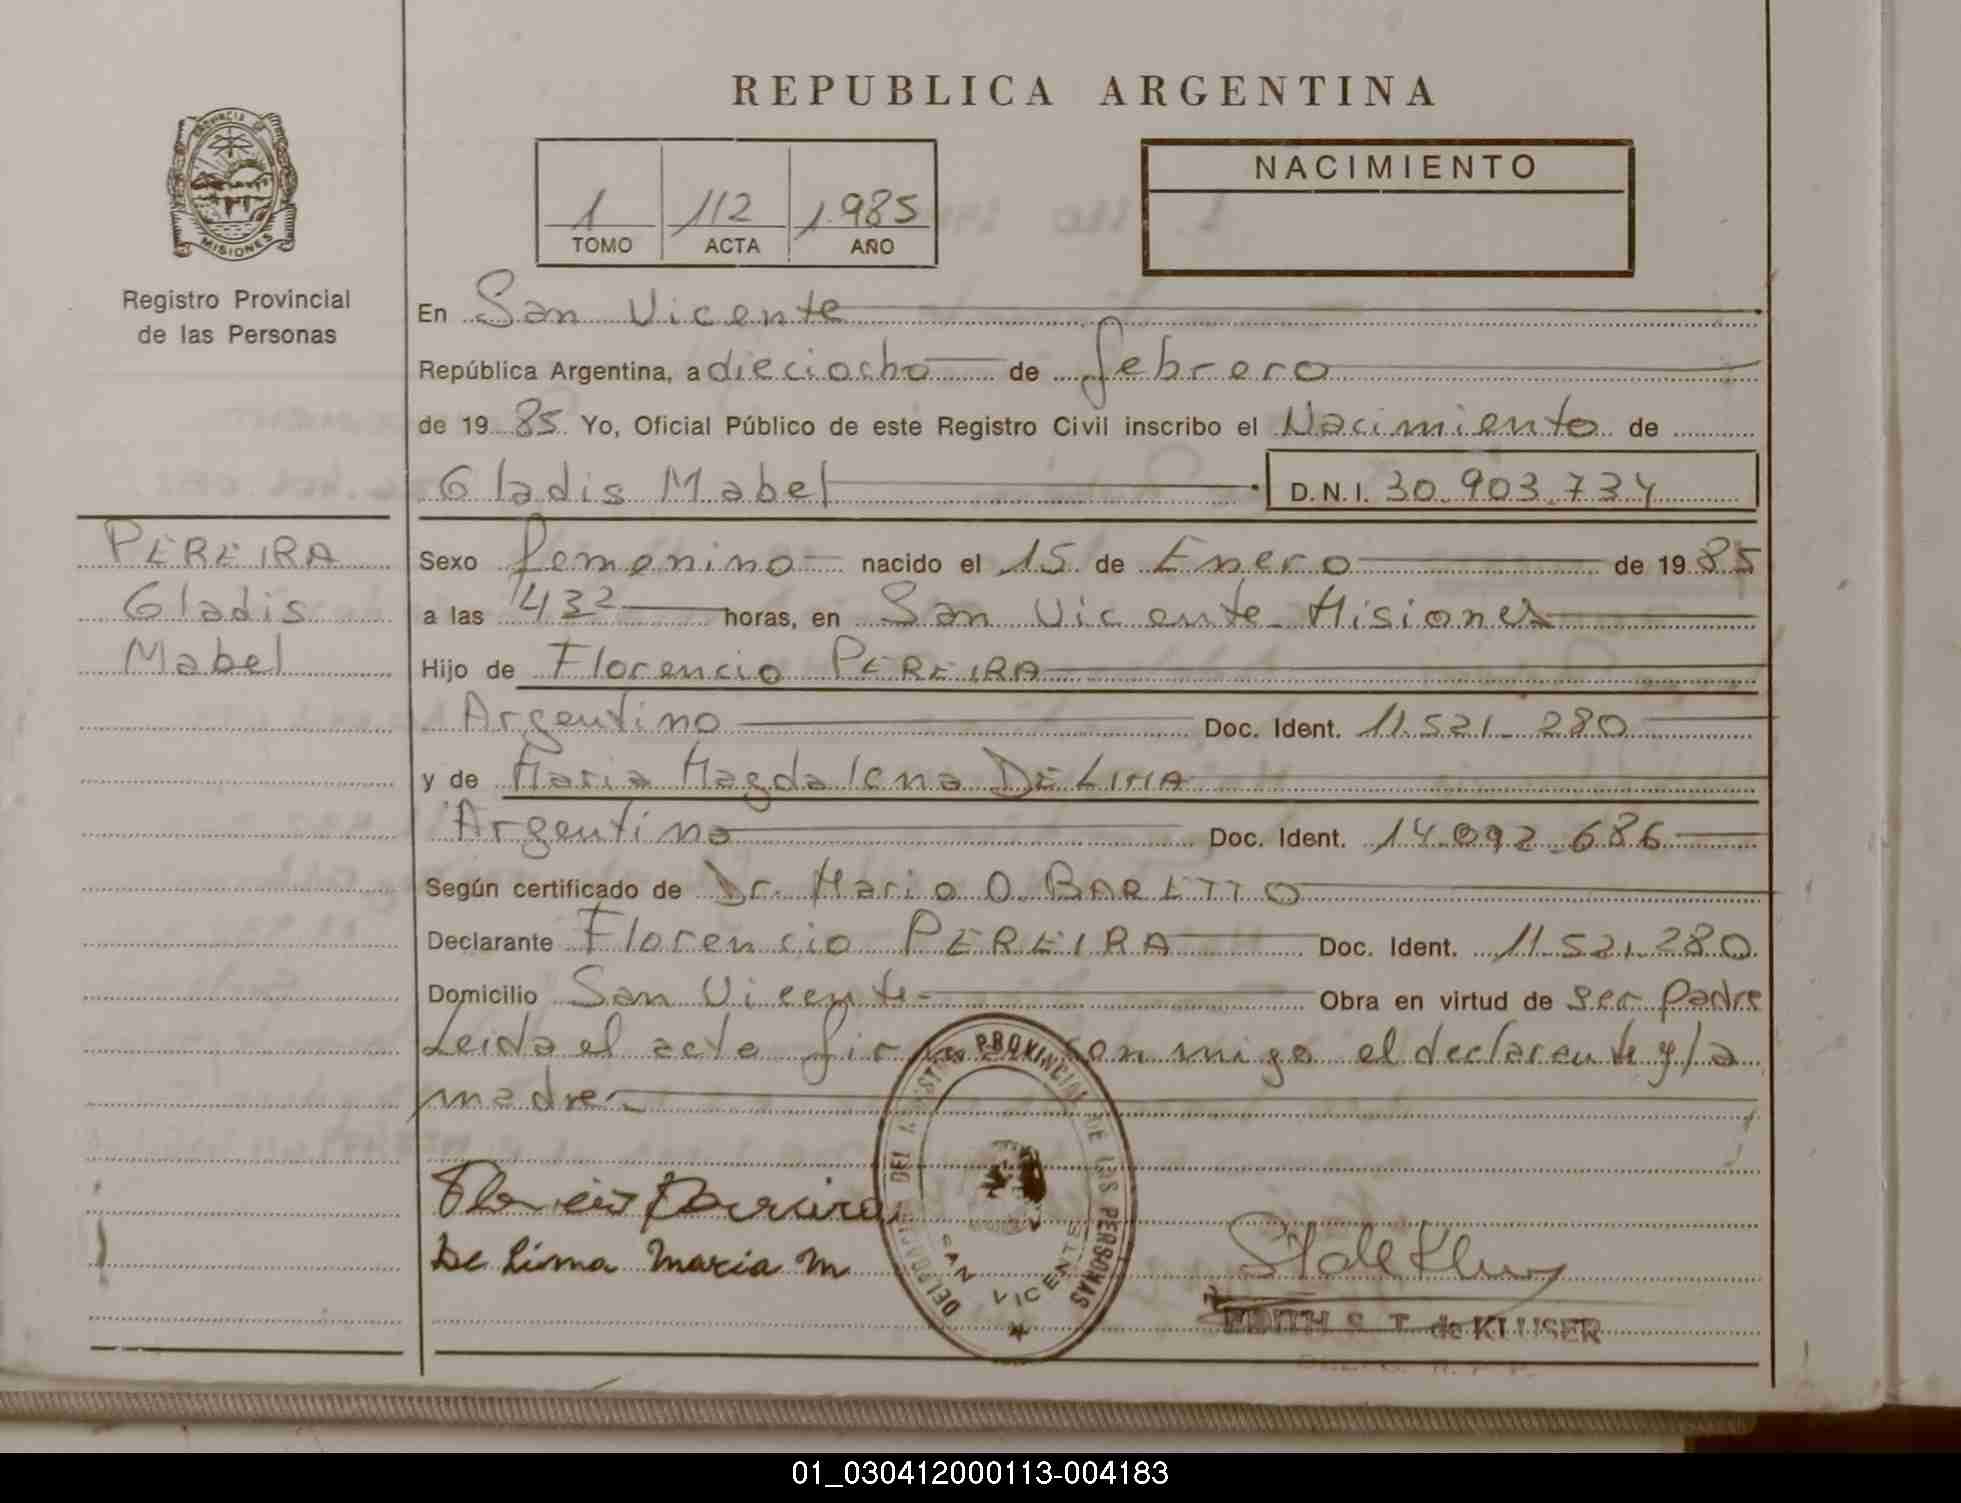 REPUBLICA ARGENTINA
PROVINCIA DE
MISIONES
Registro Provincial
de las Personas
1 112 1.985
TOMO ACTA AÑO
NACIMIENTO
En San Vicente
República Argentina, a dieciocho de febrero
de 19 85 Yo, Oficial Público de este Registro Civil inscribo el Nacimiento de
Gladis Mabel D.N.I. 30.903.734
PEREIRA
Gladis
Mabel
Sexo femenino nacido el 15 de Enero de 19 85
a las 1432 horas, en San Vicente - Misiones
Hijo de Florencio PEREIRA
Argentino Doc. Ident. 11.521.280
y de Maria Magdalena DE LIMA
Argentino Doc. Ident. 14.092.686
Según certificado de Dr. Mario O. BARETTO
Declarante Florencio PEREIRA Doc. Ident. 11.521.280
Domicilio San Vicente - Obra en virtud de ser padre
Leida el acta conmigo el declarante y la
madre -
DEL REGISTRO PROVINCIAL DE LAS PERSONAS
SAN VICENTE
De Lima Maria M
EDITH S. T. de KLUSER
01_030412000113-004183